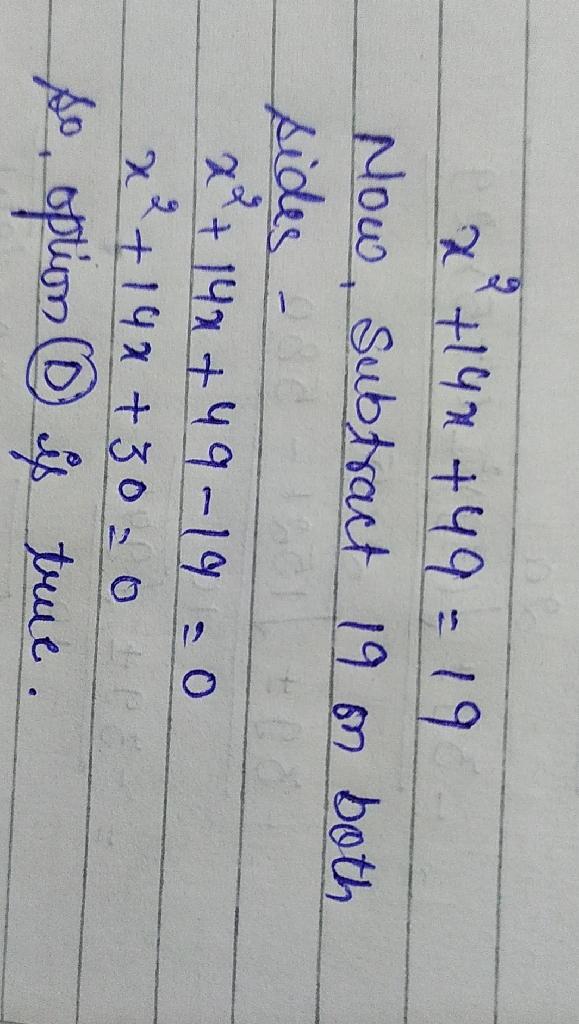 x² + 14x + 49 = 19
Now, Subtract 19 on both
sides -
x² + 14x + 49 - 19 = 0
x² + 14x + 30 = 0
so, option Ⓓ is true.